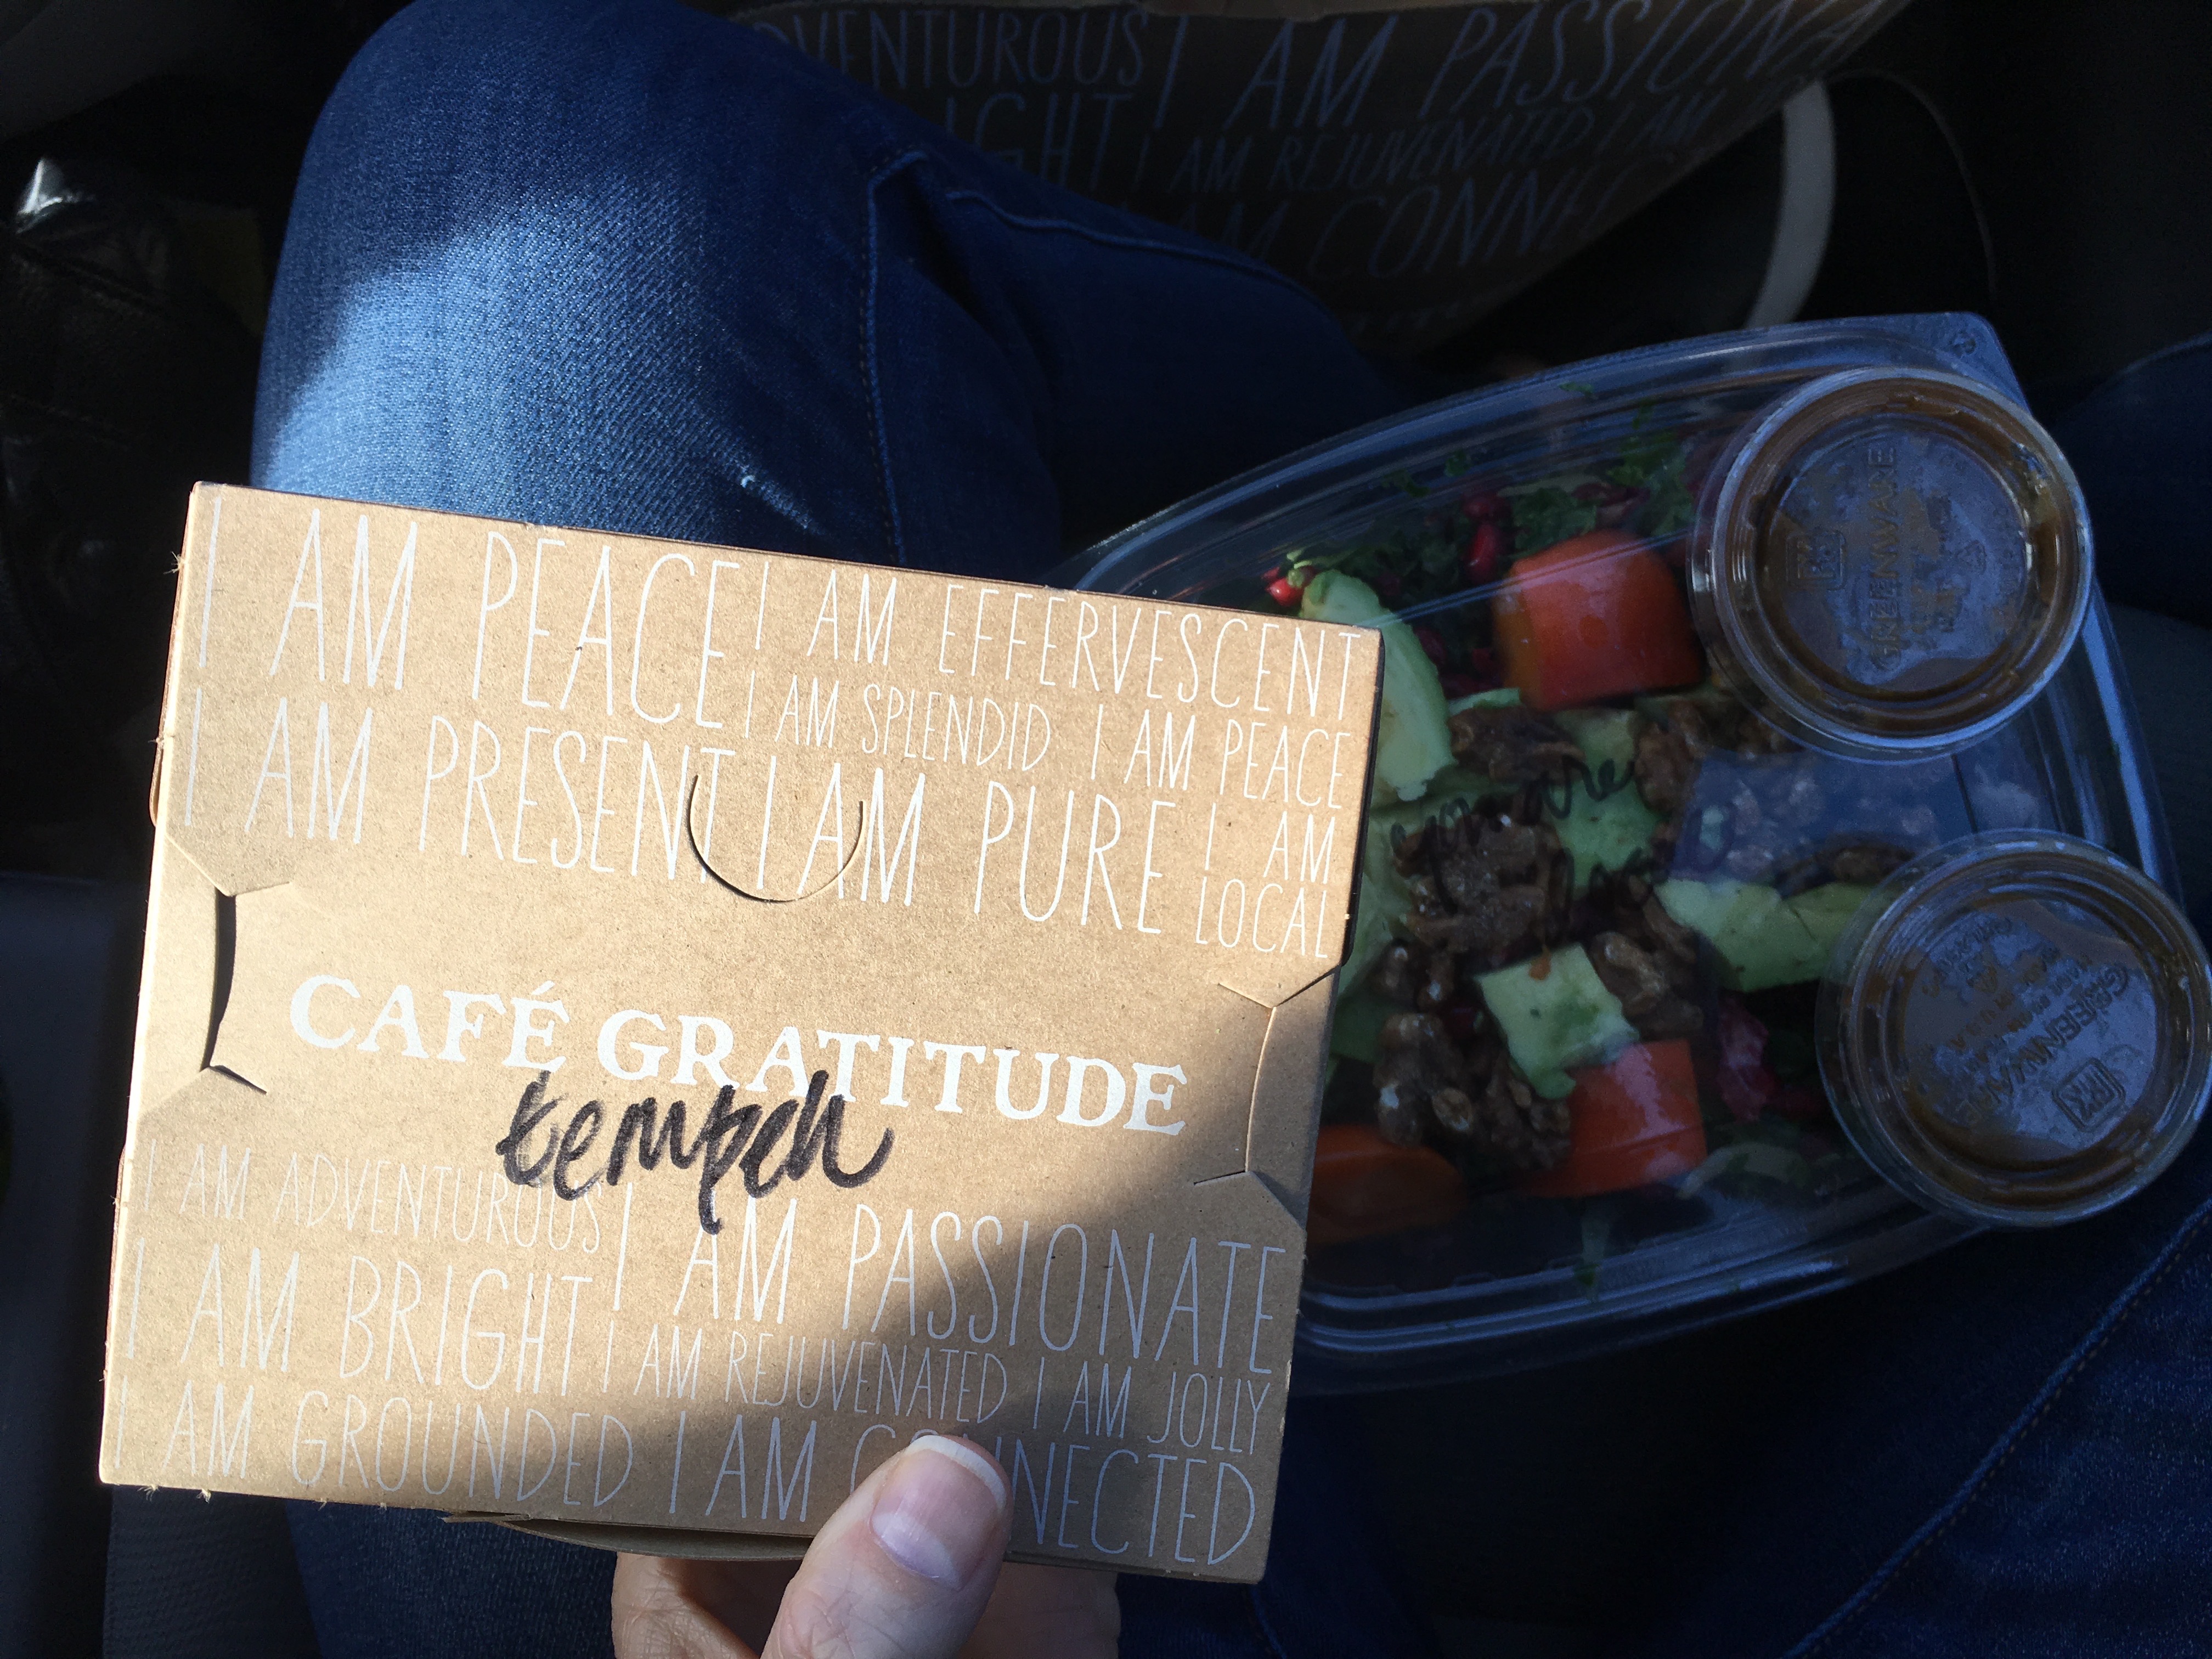 VENTUROUS I AM PASSIONA
IGHT I AM REJUVENATED I AM
I AM CONNEC
I AM PEACE I AM EFFERVESCENT
I AM SPLENDID I AM PEACE
I AM PRESENT I AM PURE I AM
LOCAL
CAFÉ GRATITUDE
tempeh
I AM ADVENTUROUS I AM PASSIONATE
I AM BRIGHT I AM REJUVENATED I AM JOLLY
I AM GROUNDED I AM CONNECTED
GREENWARE
GREENWARE